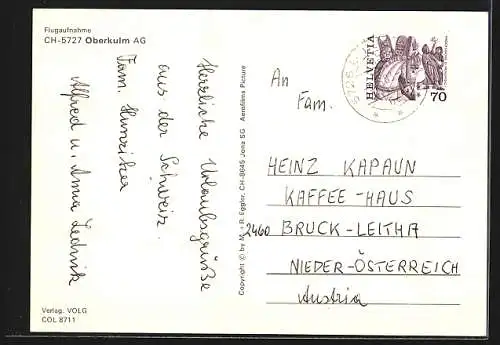 Flugaufnahme
CH-5727 Oberkulm AG
Herzliche Urlaubsgrüße
aus der Schweiz.
Fam. Hunziker
Alfred u. Anna
Verlag. VOLG
COL 8711
Copyright © by M. + R. Eggler, CH-8645 Jona SG Aerofilms Picture
HELVETIA
70
5726
An
Fam.
HEINZ KAPAUN
KAFFEE-HAUS
2460 BRUCK-LEITHA
NIEDER-ÖSTERREICH
Austria